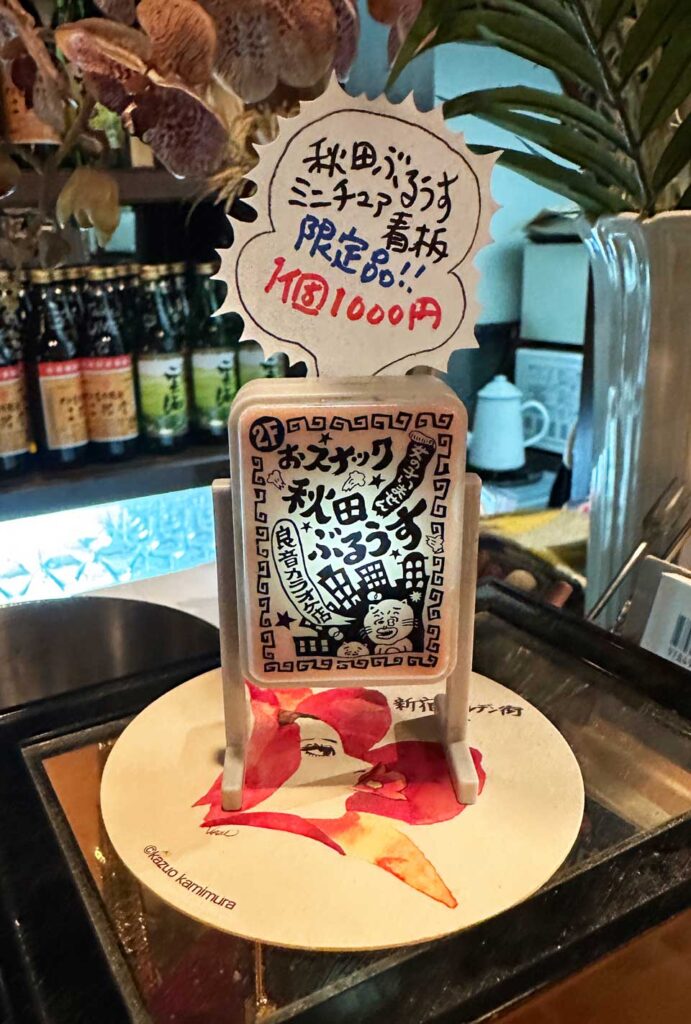 秋田ぶるうす
ミニチュア
看板
限定品!!
1個1000円
2F
おスナック
女の子いません
秋田
ぶるうす
良音カラオケの店
新宿
デン街
©kazuo kamimura